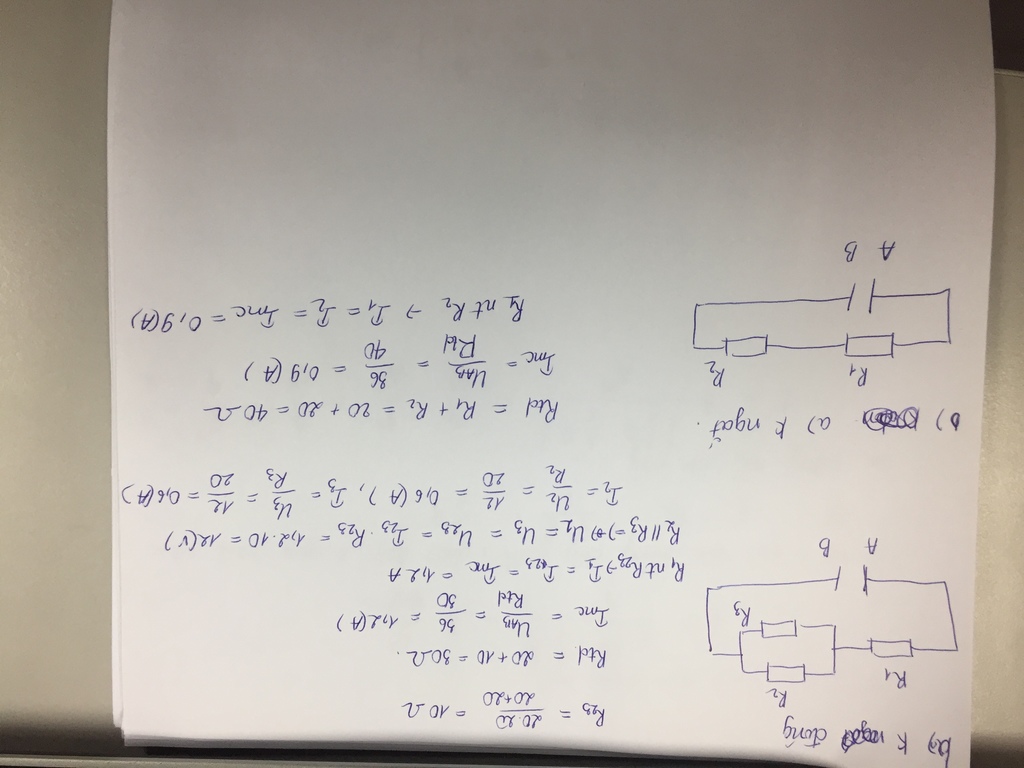 b) K đóng
R23 = 20.20/20+20 = 10Ω
Rtđ = 20+10 = 30Ω.
Imc = UAB/Rtđ = 36/30 = 1,2(A)
R1 nt R23 → I1 = I23 = Imc = 1,2A
R2 // R3 => U2 = U3 = U23 = I23 . R23 = 1,2.10 = 12(V)
I2 = U2/R2 = 12/20 = 0,6(A), I3 = U3/R3 = 12/20 = 0,6(A)
R2
R1
R3
A B
a) K ngắt.
Rtđ = R1 + R2 = 20 + 20 = 40Ω
Imc = UAB/Rtđ = 36/40 = 0,9(A)
R1 nt R2 → I1 = I2 = Imc = 0,9(A)
R1 R2
A B